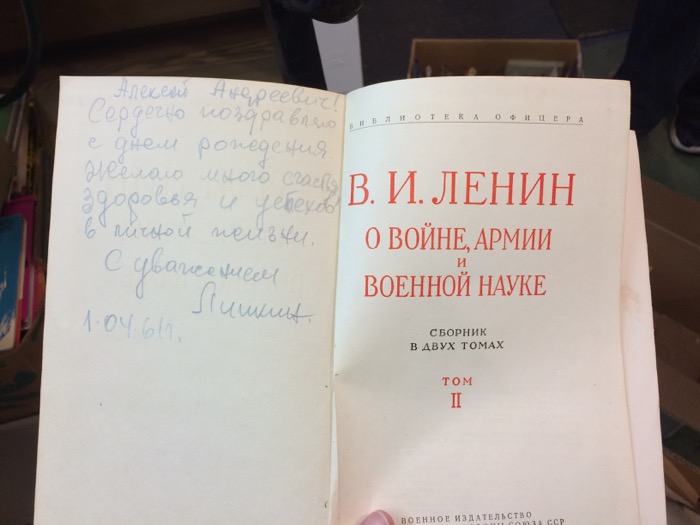 Алексей Андреевич!
Сердечно поздравляю
с днем рождения
Желаю много счастья
здоровья и успехов
в личной жизни.
С уважением
1.04.61г.
БИБЛИОТЕКА ОФИЦЕРА
В. И. ЛЕНИН
О ВОЙНЕ, АРМИИ
И
ВОЕННОЙ НАУКЕ
СБОРНИК
В ДВУХ ТОМАХ
ТОМ
II
ВОЕННОЕ ИЗДАТЕЛЬСТВО
СОЮЗА ССР